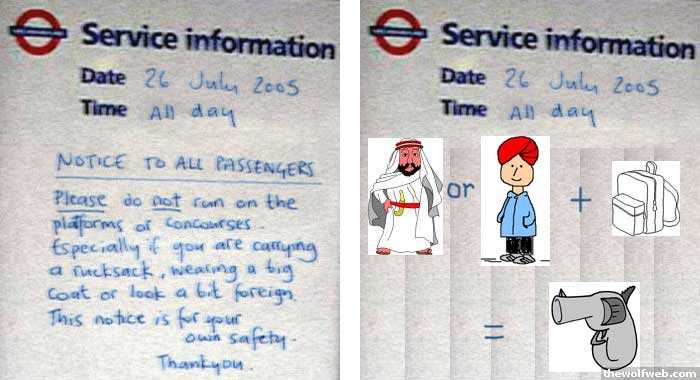 Service information
Date 26 July 2005
Time All day
NOTICE TO ALL PASSENGERS
Please do not run on the
platforms or concourses.
Especially if you are carrying
a rucksack, wearing a big
coat or look a bit foreign.
This notice is for your
own safety.
Thankyou.
Service information
Date 26 July 2005
Time All day
or
+
=
thewolfweb.com